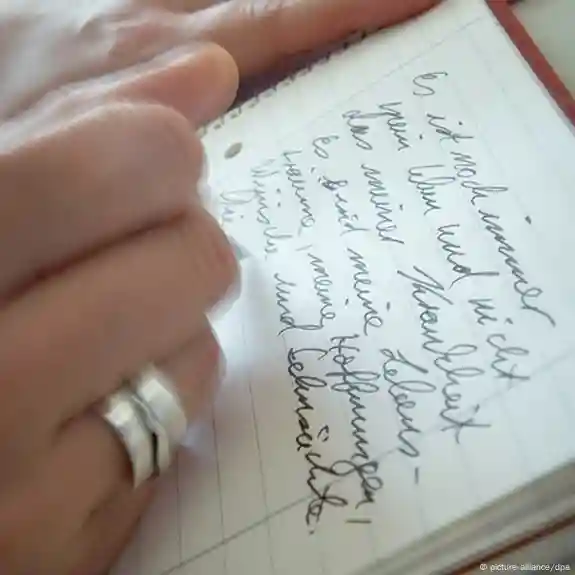 Es ist noch immer
mein Leben und nicht
das meiner Krankheit
es sind meine Lebens-
träume, meine Hoffnungen,
Wünsche und Sehnsüchte.
Die
© picture-alliance/dpa